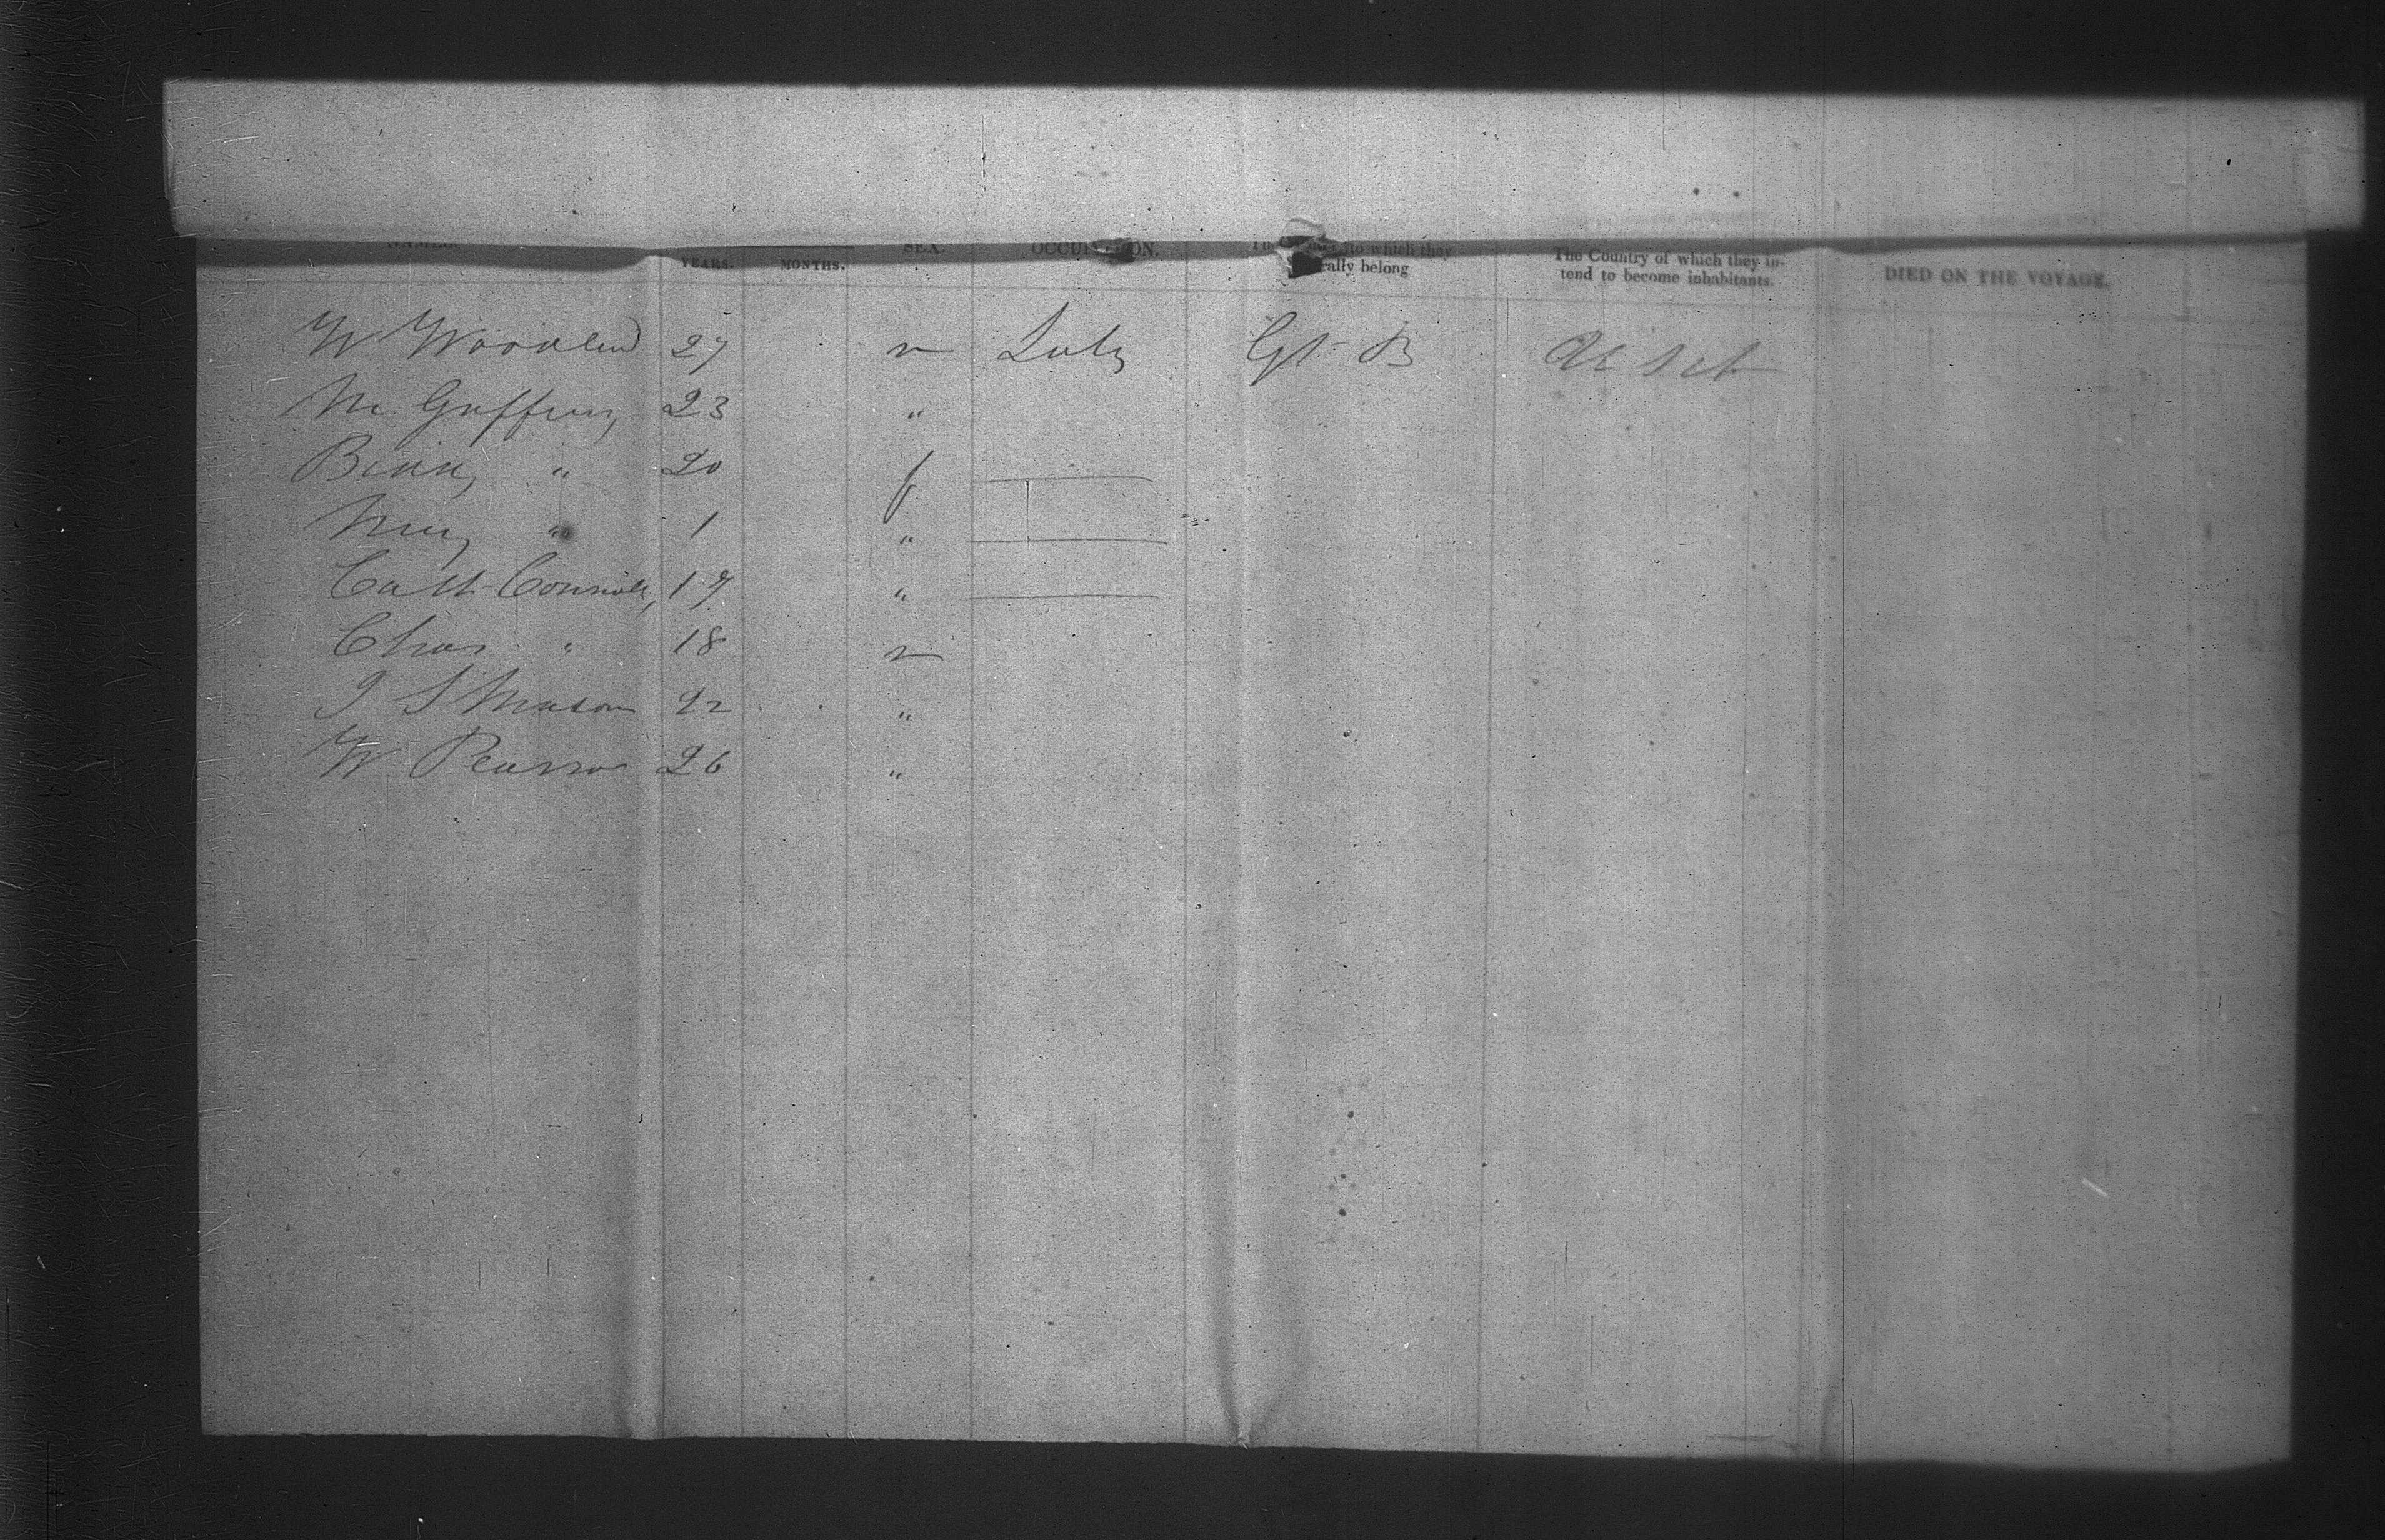 NAMES. YEARS. MONTHS. SEX. OCCUPATION. to which they
rally belong
The Country of which they in-
tend to become inhabitants.
DIED ON THE VOYAGE.
W 27 m Gt B
M Gaffney 23 "
" 20 f
Mary " 1 "
Cath Connolly 19 "
Chas " 18 m
J S Mason 22 "
W Pearson 26 "